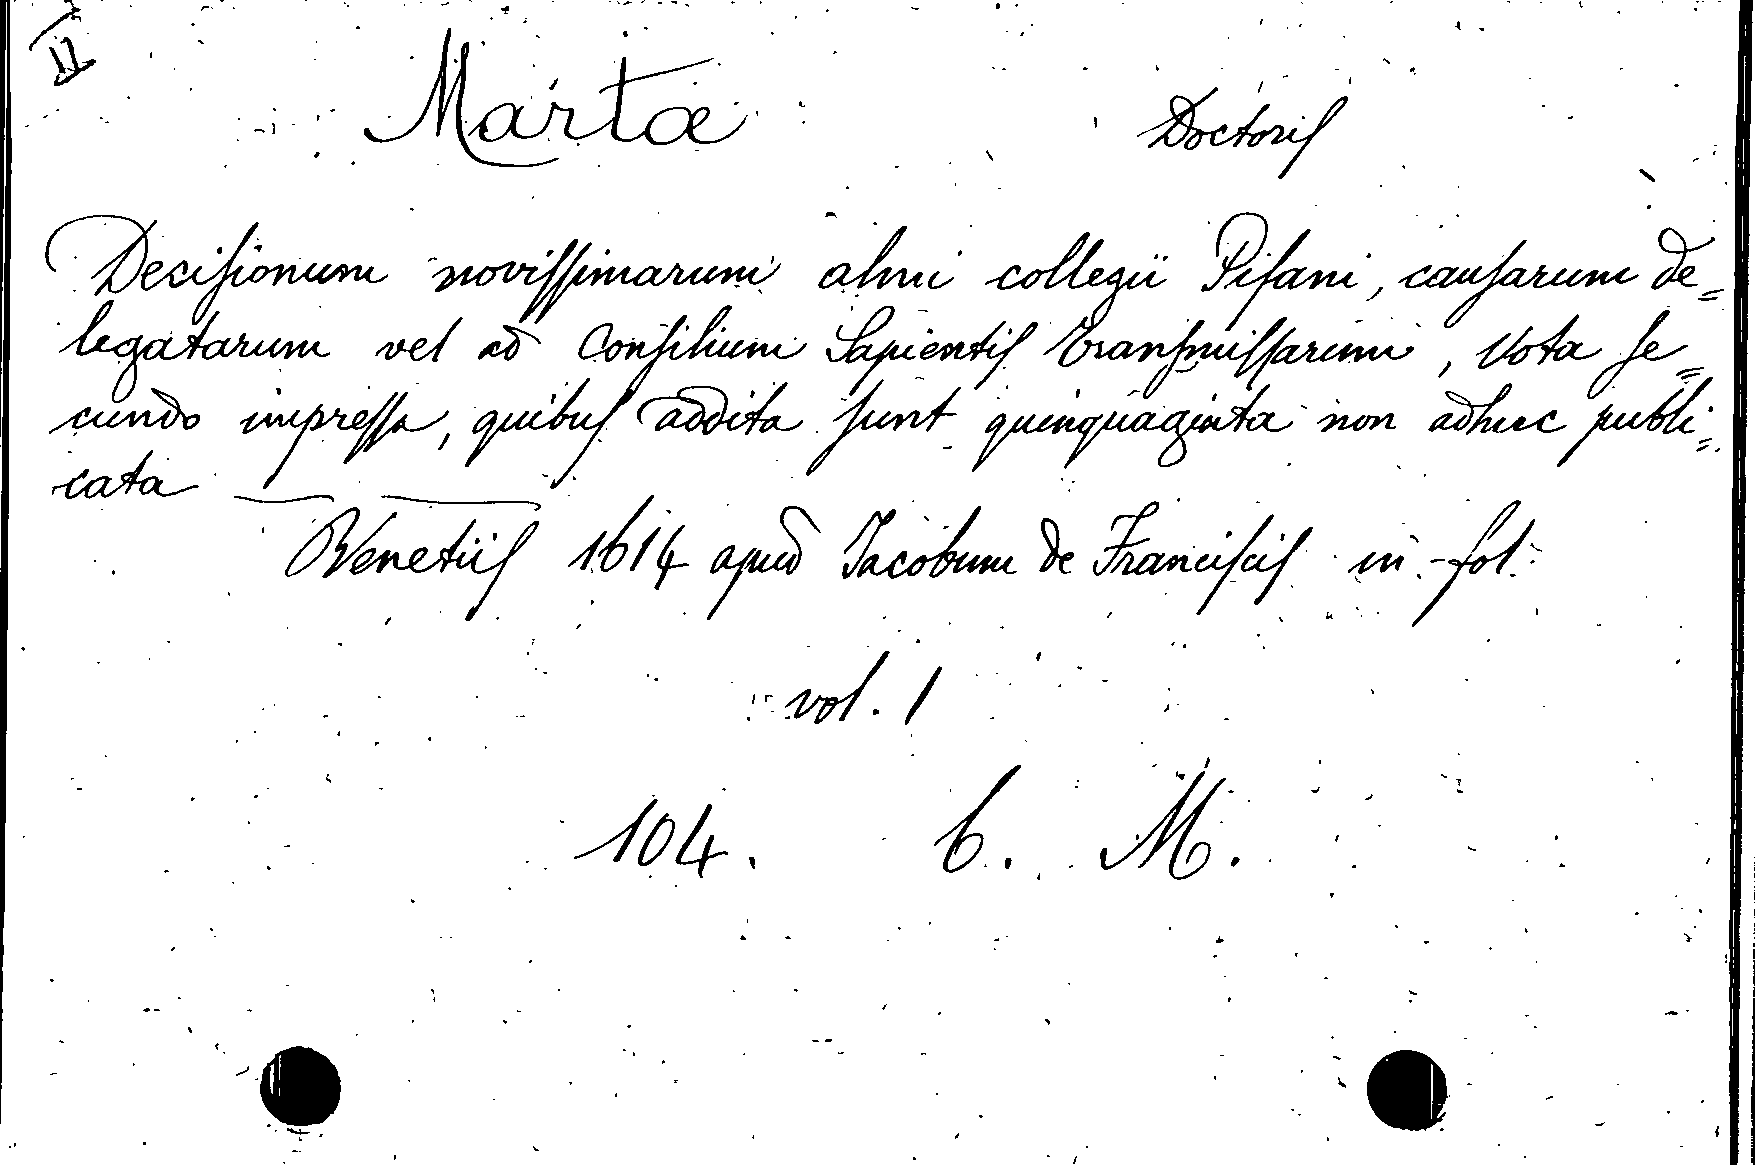 II
Martæ Doctoris
Decisionum novissimarum almi collegii Pisani, causarum de=
legatarum vel ad Consilium Sapientis transmissarum, Vota se=
cundo impressa, quibus addita sunt quinquaginta non adhuc publi=
cata
Venetiis 1614 apud Jacobum de Franciscis in-fol.
vol. 1
104. 6. M.